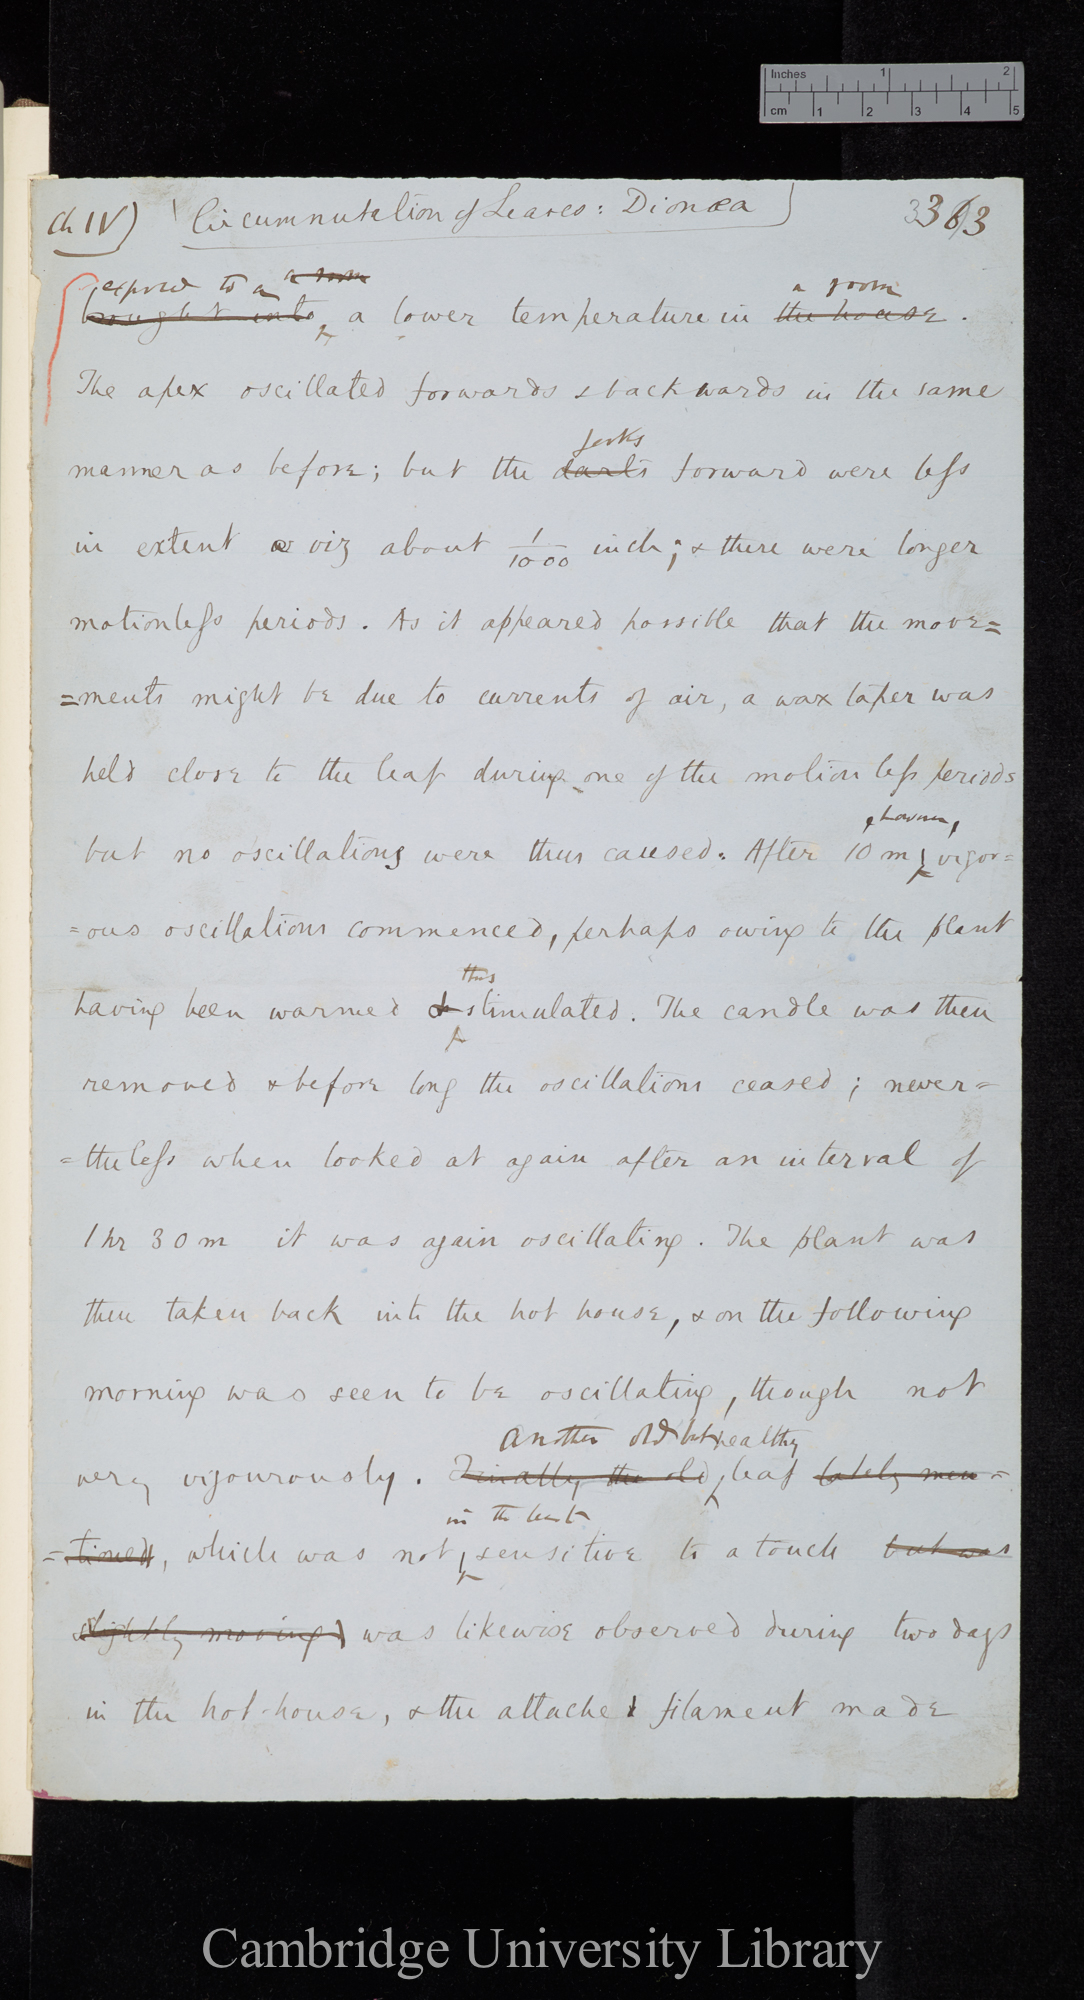 Inches 1 2
cm 1 2 3 4 5
Ch IV) Circumnutation of Leaves: Dionæa
exposed to a a room a room
brought into a lower temperature in the house.
The apex oscillated forwards & backwards in the same
jerks
manner as before; but the darts forward were less
in extent viz about 1/1000 inch; & there were longer
motionless periods. As it appeared possible that the move=
=ments might be due to currents of air, a wax taper was
held close to the leaf during one of the motionless periods
, however,
but no oscillations were thus caused. After 10 m vigor=
=ous oscillations commenced, perhaps owing to the plant
thus
having been warmed & stimulated. The candle was then
removed & before long the oscillations ceased; never=
=theless when looked at again after an interval of
1 hr 30 m it was again oscillating. The plant was
then taken back into the hot house, & on the following
morning was seen to be oscillating, though not
Another old but healthy
very vigourously. Finally the old, leaf lately men=
in the least
=tioned, which was not sensitive to a touch but was
slightly moving was likewise observed during two days
in the hot-house, & the attached filament made
Cambridge University Library